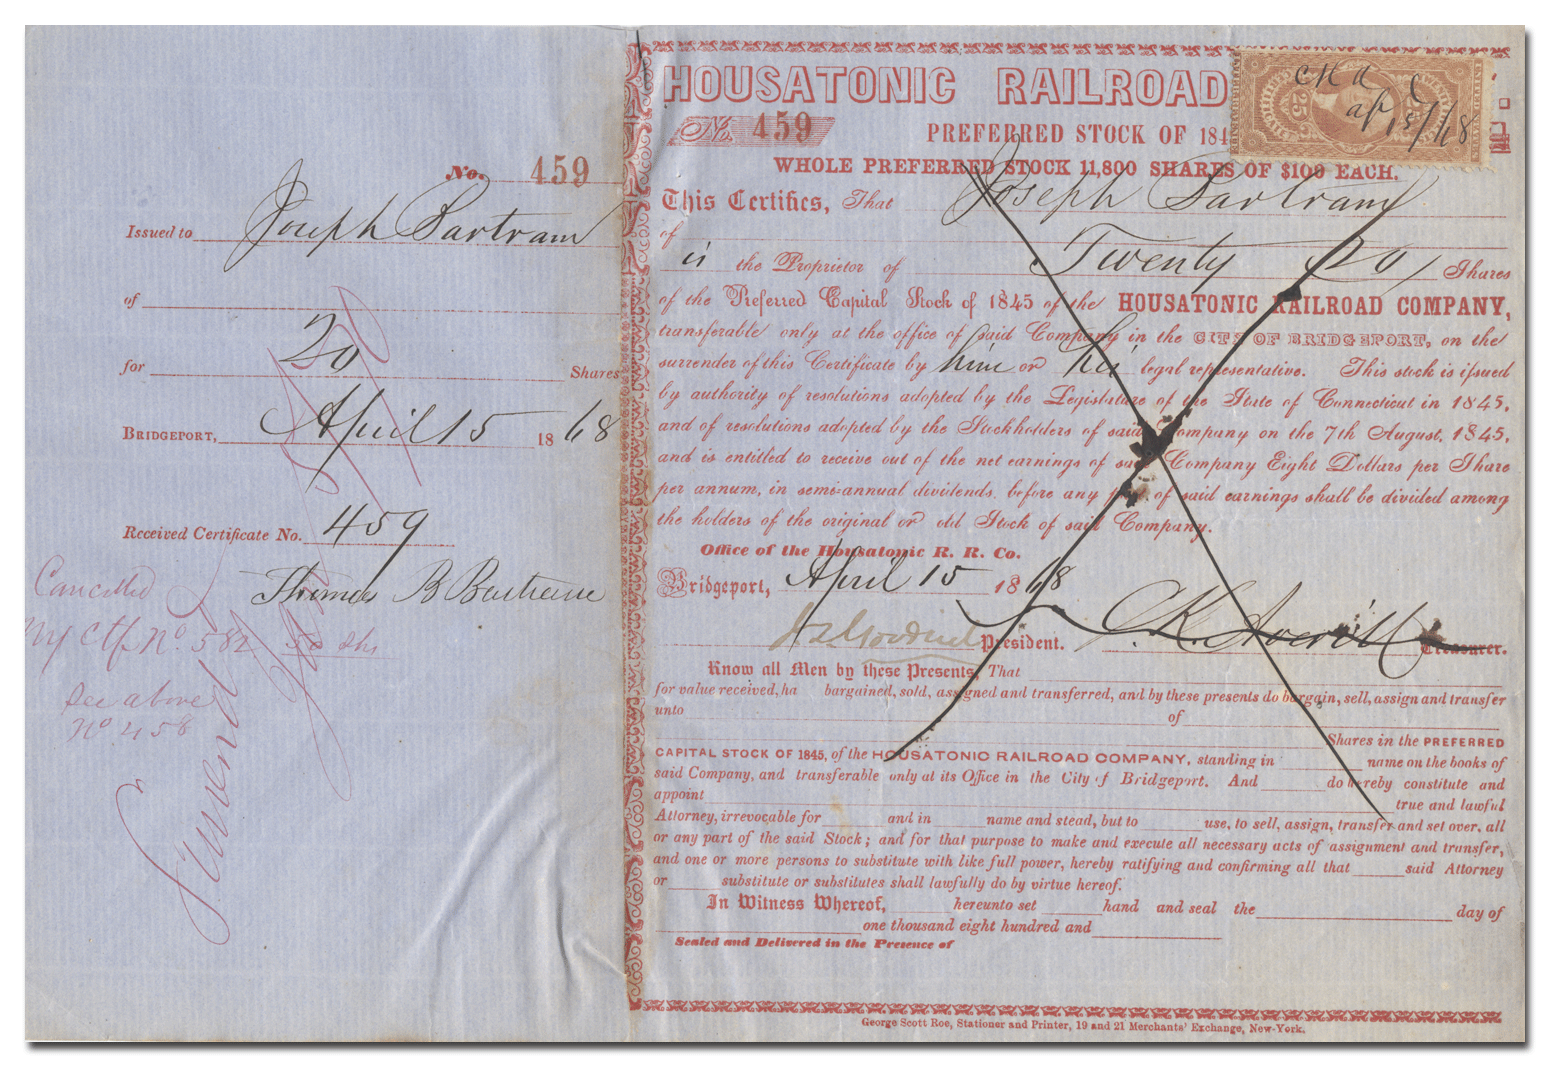 No. 459
Issued to Joseph Bartram
of
for 20 Shares
BRIDGEPORT, April 15 1868
Received Certificate No. 459
Thomas B Bartram
Cancelled
Ctf No. 582 50 shs
See above
No 458
HOUSATONIC RAILROAD
No. 459
PREFERRED STOCK OF 184
WHOLE PREFERRED STOCK 11,800 SHARES OF $100 EACH.
CKA
ap 15/68
This Certifies, That Joseph Bartram
of
is the Proprietor of Twenty 20/ Shares
of the Preferred Capital Stock of 1845 of the HOUSATONIC RAILROAD COMPANY,
transferable only at the office of said Company in the CITY OF BRIDGEPORT, on the
surrender of this Certificate by him or his legal representative. This stock is issued
by authority of resolutions adopted by the Legislature of the State of Connecticut in 1845,
and of resolutions adopted by the Stockholders of said Company on the 7th August, 1845,
and is entitled to receive out of the net earnings of said Company Eight Dollars per Share
per annum, in semi-annual dividends, before any part of said earnings shall be divided among
the holders of the original or old Stock of said Company.
Office of the Housatonic R. R. Co.
Bridgeport, April 15 1868
President. C. K. Averill Treasurer.
Know all Men by these Presents, That
for value received, ha bargained, sold, assigned and transferred, and by these presents do bargain, sell, assign and transfer
unto of
Shares in the PREFERRED
CAPITAL STOCK OF 1845, of the HOUSATONIC RAILROAD COMPANY, standing in name on the books of
said Company, and transferable only at its Office in the City of Bridgeport. And do hereby constitute and
appoint true and lawful
Attorney, irrevocable for and in name and stead, but to use, to sell, assign, transfer and set over, all
or any part of the said Stock; and for that purpose to make and execute all necessary acts of assignment and transfer,
and one or more persons to substitute with like full power, hereby ratifying and confirming all that said Attorney
or substitute or substitutes shall lawfully do by virtue hereof.
In Witness Whereof, hereunto set hand and seal the day of
one thousand eight hundred and
Sealed and Delivered in the Presence of
George Scott Roe, Stationer and Printer, 19 and 21 Merchants' Exchange, New-York.